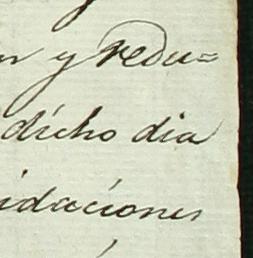 y redu=
dicho dia
idaciones